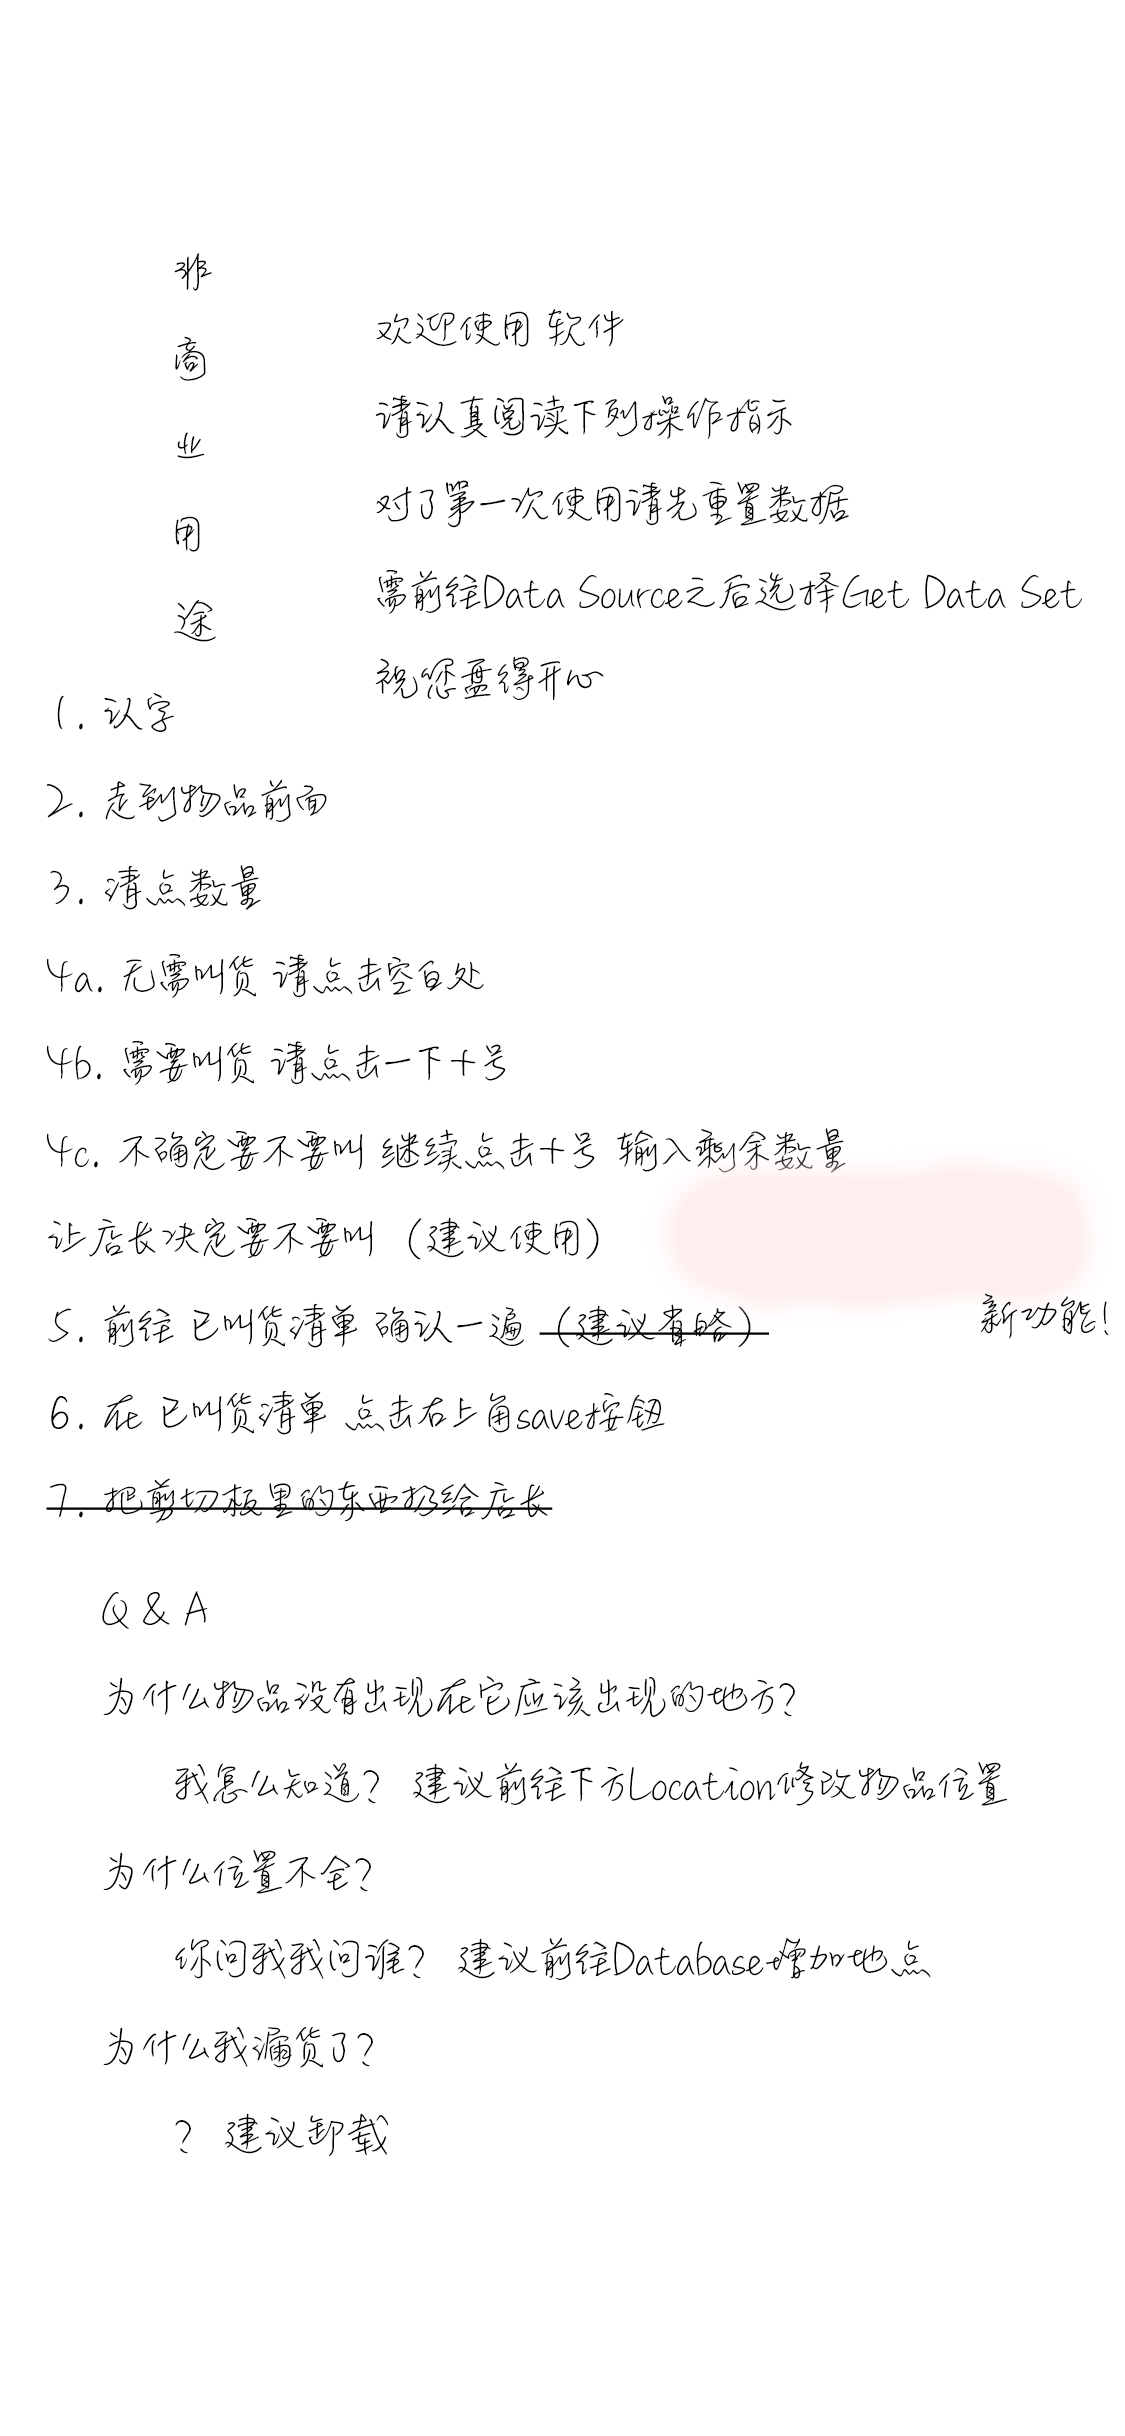 非商业用途
欢迎使用 软件
请认真阅读下列操作指示
对了第一次使用请先重置数据
需前往Data Source之后选择Get Data Set
祝您盘得开心
1. 认字
2. 走到物品前面
3. 清点数量
4a. 无需叫货 请点击空白处
4b. 需要叫货 请点击一下十号
4c. 不确定要不要叫 继续点击十号 输入剩余数量
让店长决定要不要叫 （建议使用）
5. 前往 已叫货清单 确认一遍 （建议省略）
新功能!
6. 在 已叫货清单 点击右上角save按钮
7. 把剪切板里的东西扔给店长
Q & A
为什么物品没有出现在它应该出现的地方?
我怎么知道? 建议前往下方Location修改物品位置
为什么位置不全?
你问我我问谁? 建议前往Database增加地点
为什么我漏货了?
? 建议卸载